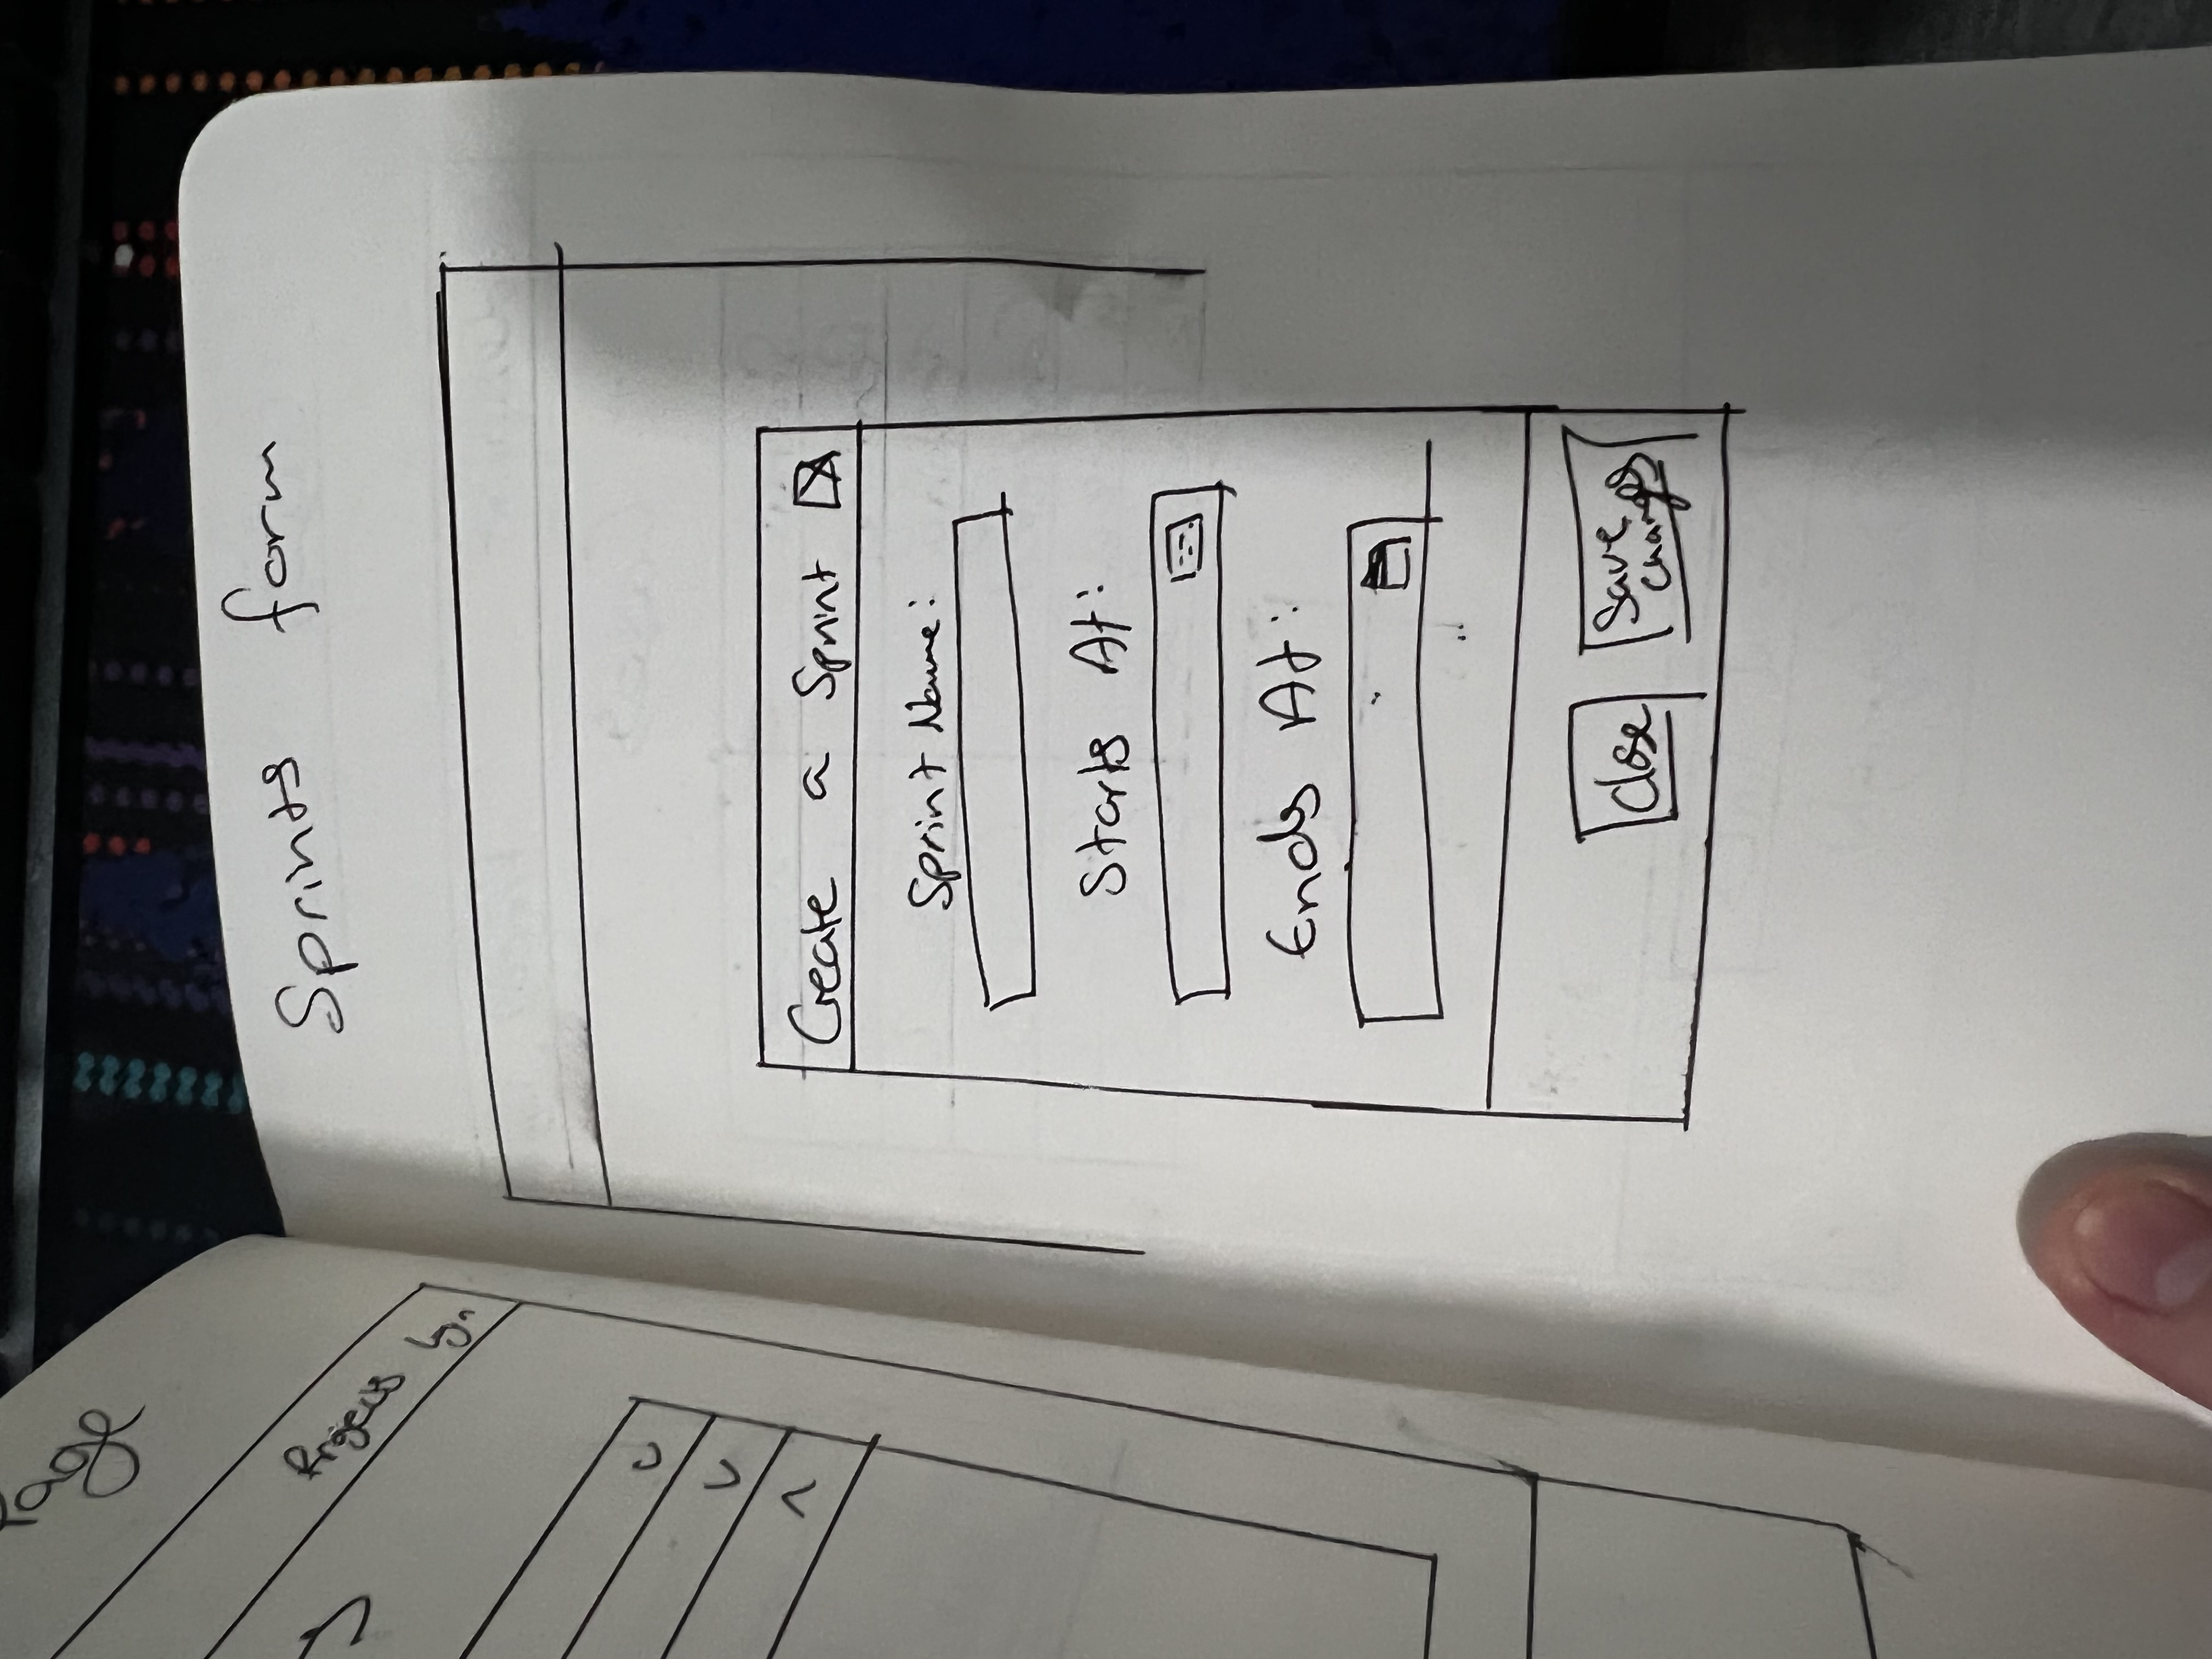 Page
Projects by.
Sprints form
Create a Sprint
Sprint Name:
Starts At:
Ends At:
Close
Save
changes